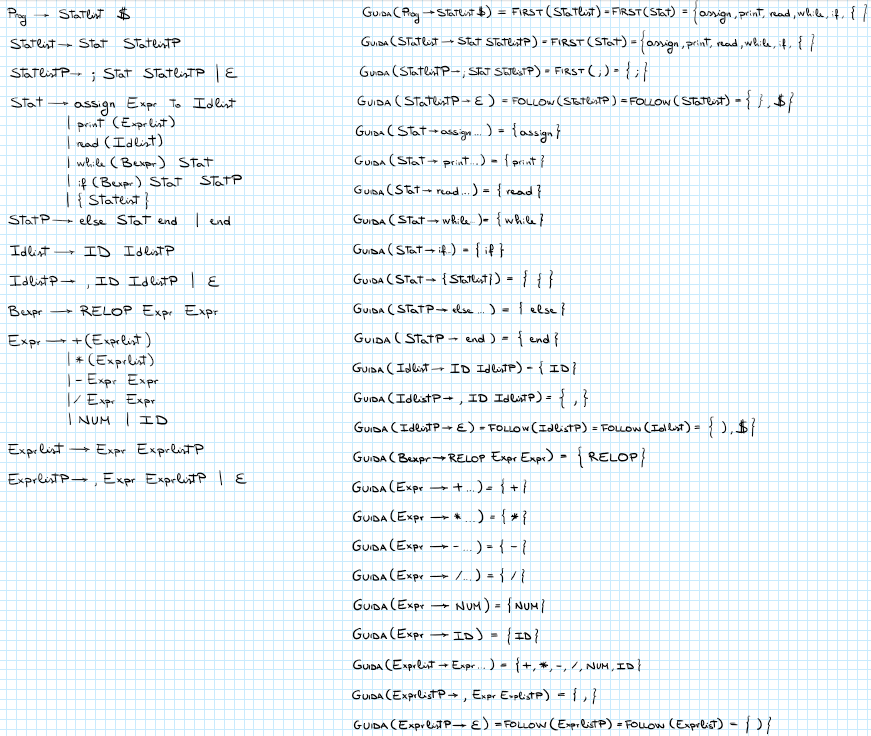 Prog → Statlist $
Statlist → Stat StatlistP
StatlistP → ; Stat StatlistP | ε
Stat → assign Expr To Idlist
| print (Exprlist)
| read (Idlist)
| while (Bexpr) Stat
| if (Bexpr) Stat StatP
| { Statlist }
StatP → else Stat end | end
Idlist → ID IdlistP
IdlistP → , ID IdlistP | ε
Bexpr → RELOP Expr Expr
Expr → + (Exprlist)
| * (Exprlist)
| - Expr Expr
| / Expr Expr
| NUM | ID
Exprlist → Expr ExprlistP
ExprlistP → , Expr ExprlistP | ε
GUIDA (Prog → Statlist $) = FIRST (Statlist) = FIRST (Stat) = { assign, print, read, while, if, { }
GUIDA (Statlist → Stat StatlistP) = FIRST (Stat) = { assign, print, read, while, if, { }
GUIDA (StatlistP → ; Stat StatlistP) = FIRST ( ; ) = { ; }
GUIDA ( StatlistP → ε ) = FOLLOW (StatlistP) = FOLLOW (Statlist) = { } , $ }
GUIDA ( Stat → assign ... ) = { assign }
GUIDA ( Stat → print ... ) = { print }
GUIDA ( Stat → read ... ) = { read }
GUIDA ( Stat → while ... ) = { while }
GUIDA ( Stat → if .. ) = { if }
GUIDA ( Stat → { Statlist } ) = { { }
GUIDA ( StatP → else ... ) = { else }
GUIDA ( StatP → end ) = { end }
GUIDA ( Idlist → ID IdlistP ) = { ID }
GUIDA ( IdlistP → , ID IdlistP ) = { , }
GUIDA ( IdlistP → ε ) = FOLLOW (IdlistP) = FOLLOW (Idlist) = { ) , $ }
GUIDA ( Bexpr → RELOP Expr Expr ) = { RELOP }
GUIDA ( Expr → + ... ) = { + }
GUIDA ( Expr → * ... ) = { * }
GUIDA ( Expr → - ... ) = { - }
GUIDA ( Expr → / ... ) = { / }
GUIDA ( Expr → NUM ) = { NUM }
GUIDA ( Expr → ID ) = { ID }
GUIDA ( Exprlist → Expr ... ) = { +, *, -, /, NUM, ID }
GUIDA ( ExprlistP → , Expr ExplistP ) = { , }
GUIDA ( ExprlistP → ε ) = FOLLOW (ExprlistP) = FOLLOW (Exprlist) = { ) }